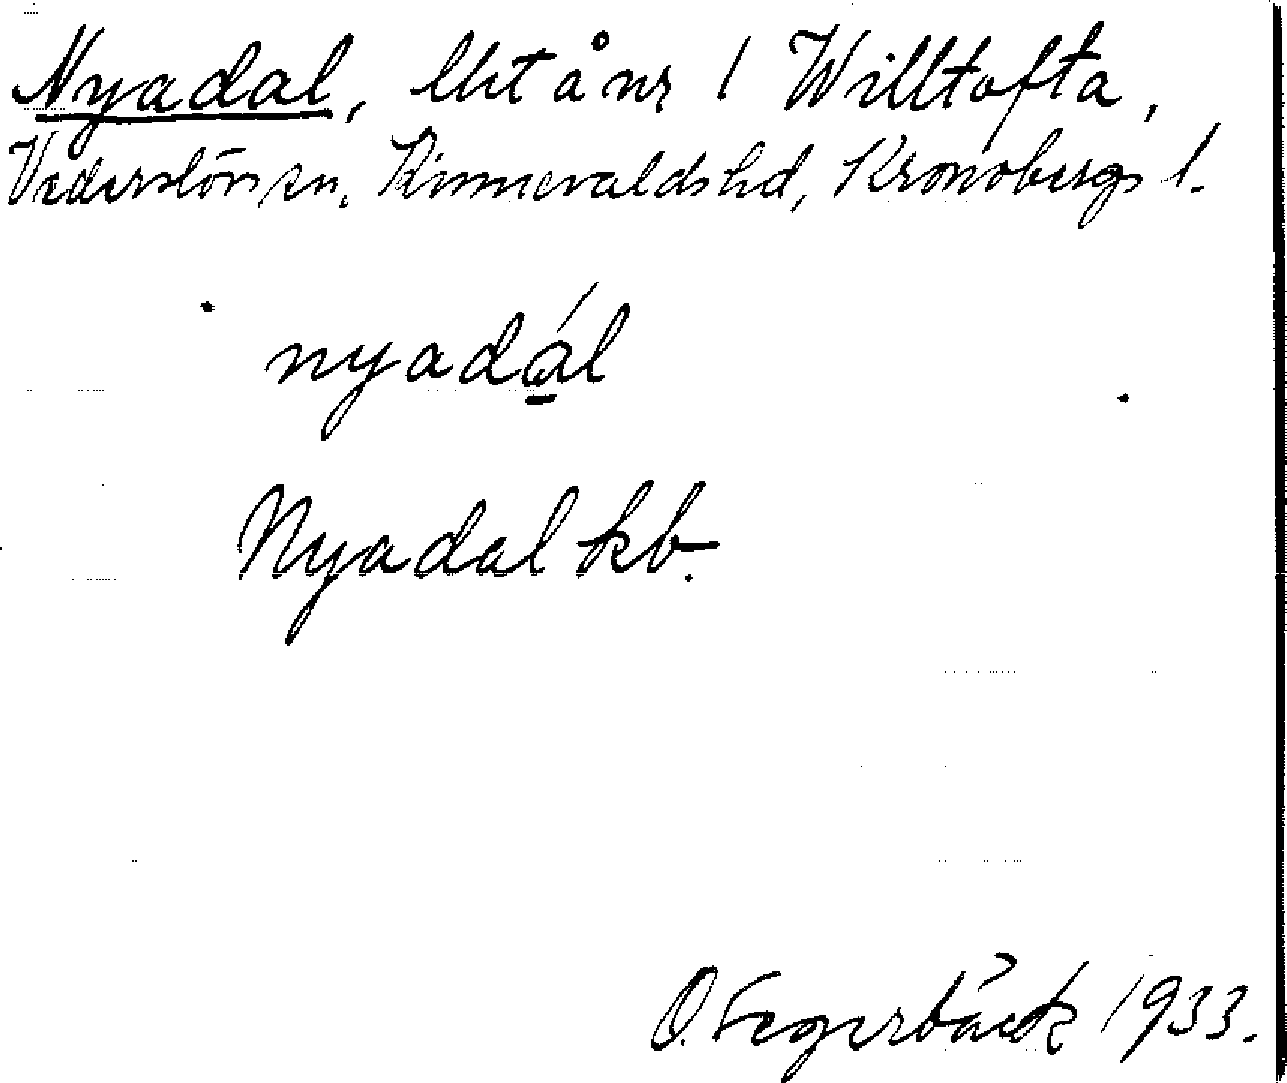 Nyadal, lht å nr 1 Willtofta,
Vederslövs sn, Kinnevaldshd, Kronobergs l.
nyadál
Nyadal kb.
O. Fegerbäck 1933.